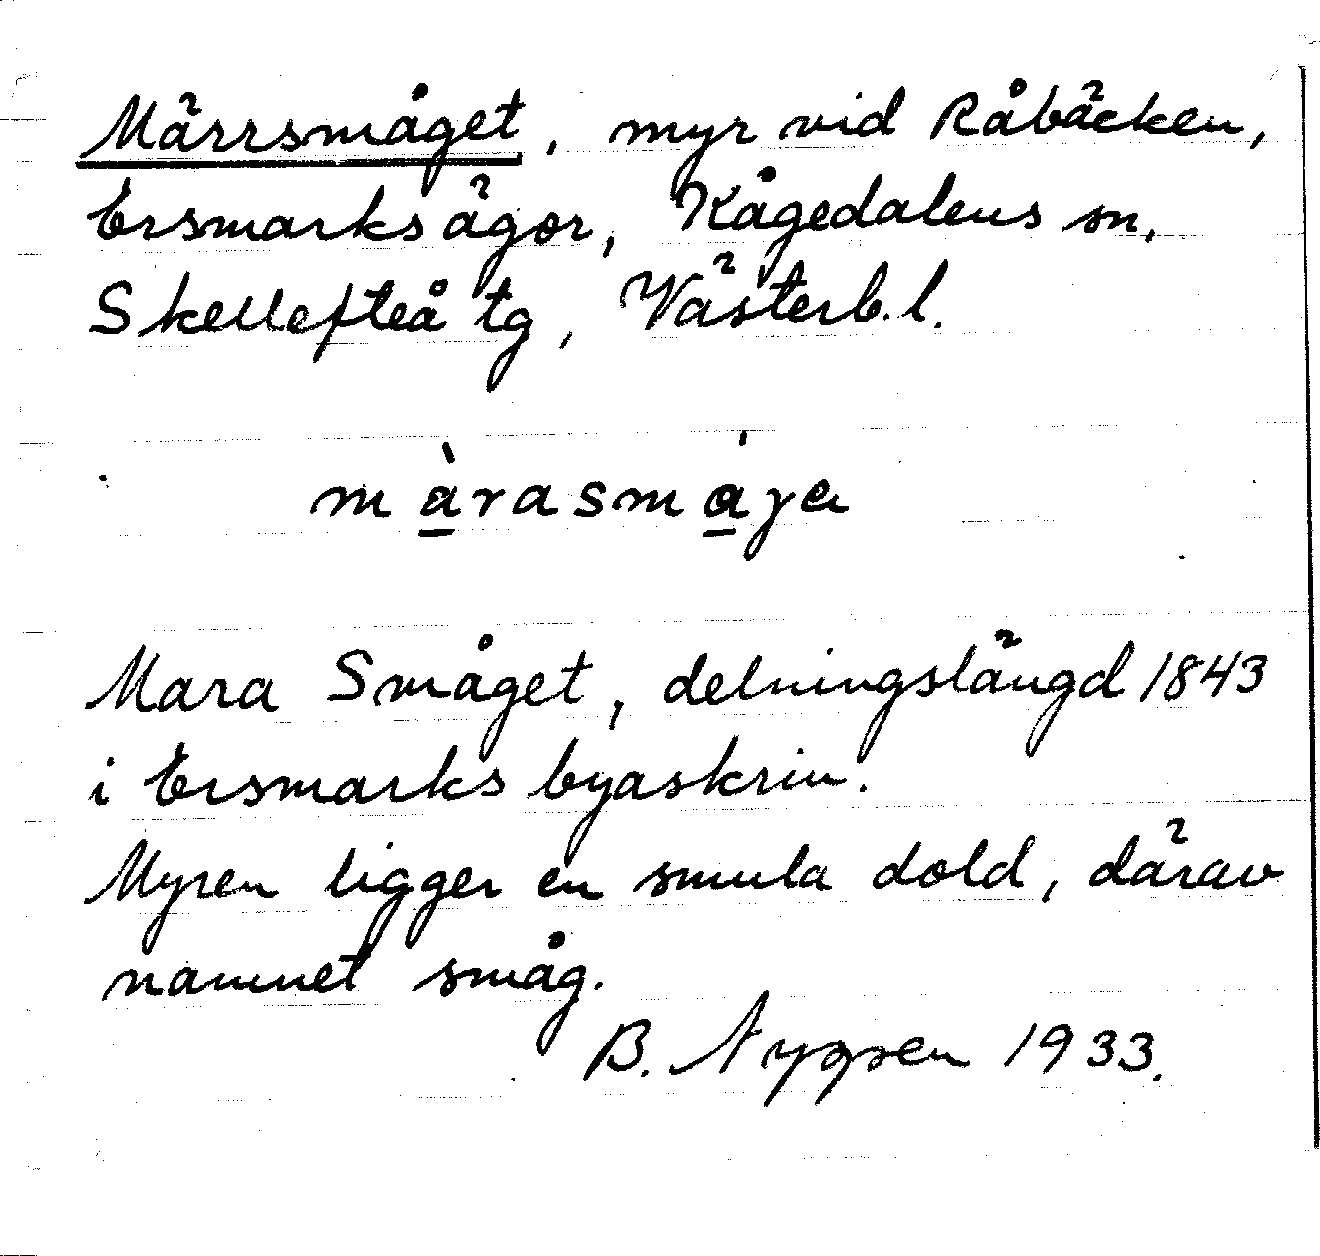 Märrsmåget, myr vid Råbäcken,
Ersmarks ägor, Kågedalens sn,
Skellefteå tg, Västerb. l.
Mara Småget, delningslängd 1843
i Ersmarks byaskrin.
Myren ligger en smula dold, därav
namnet småg.
B. 1933.